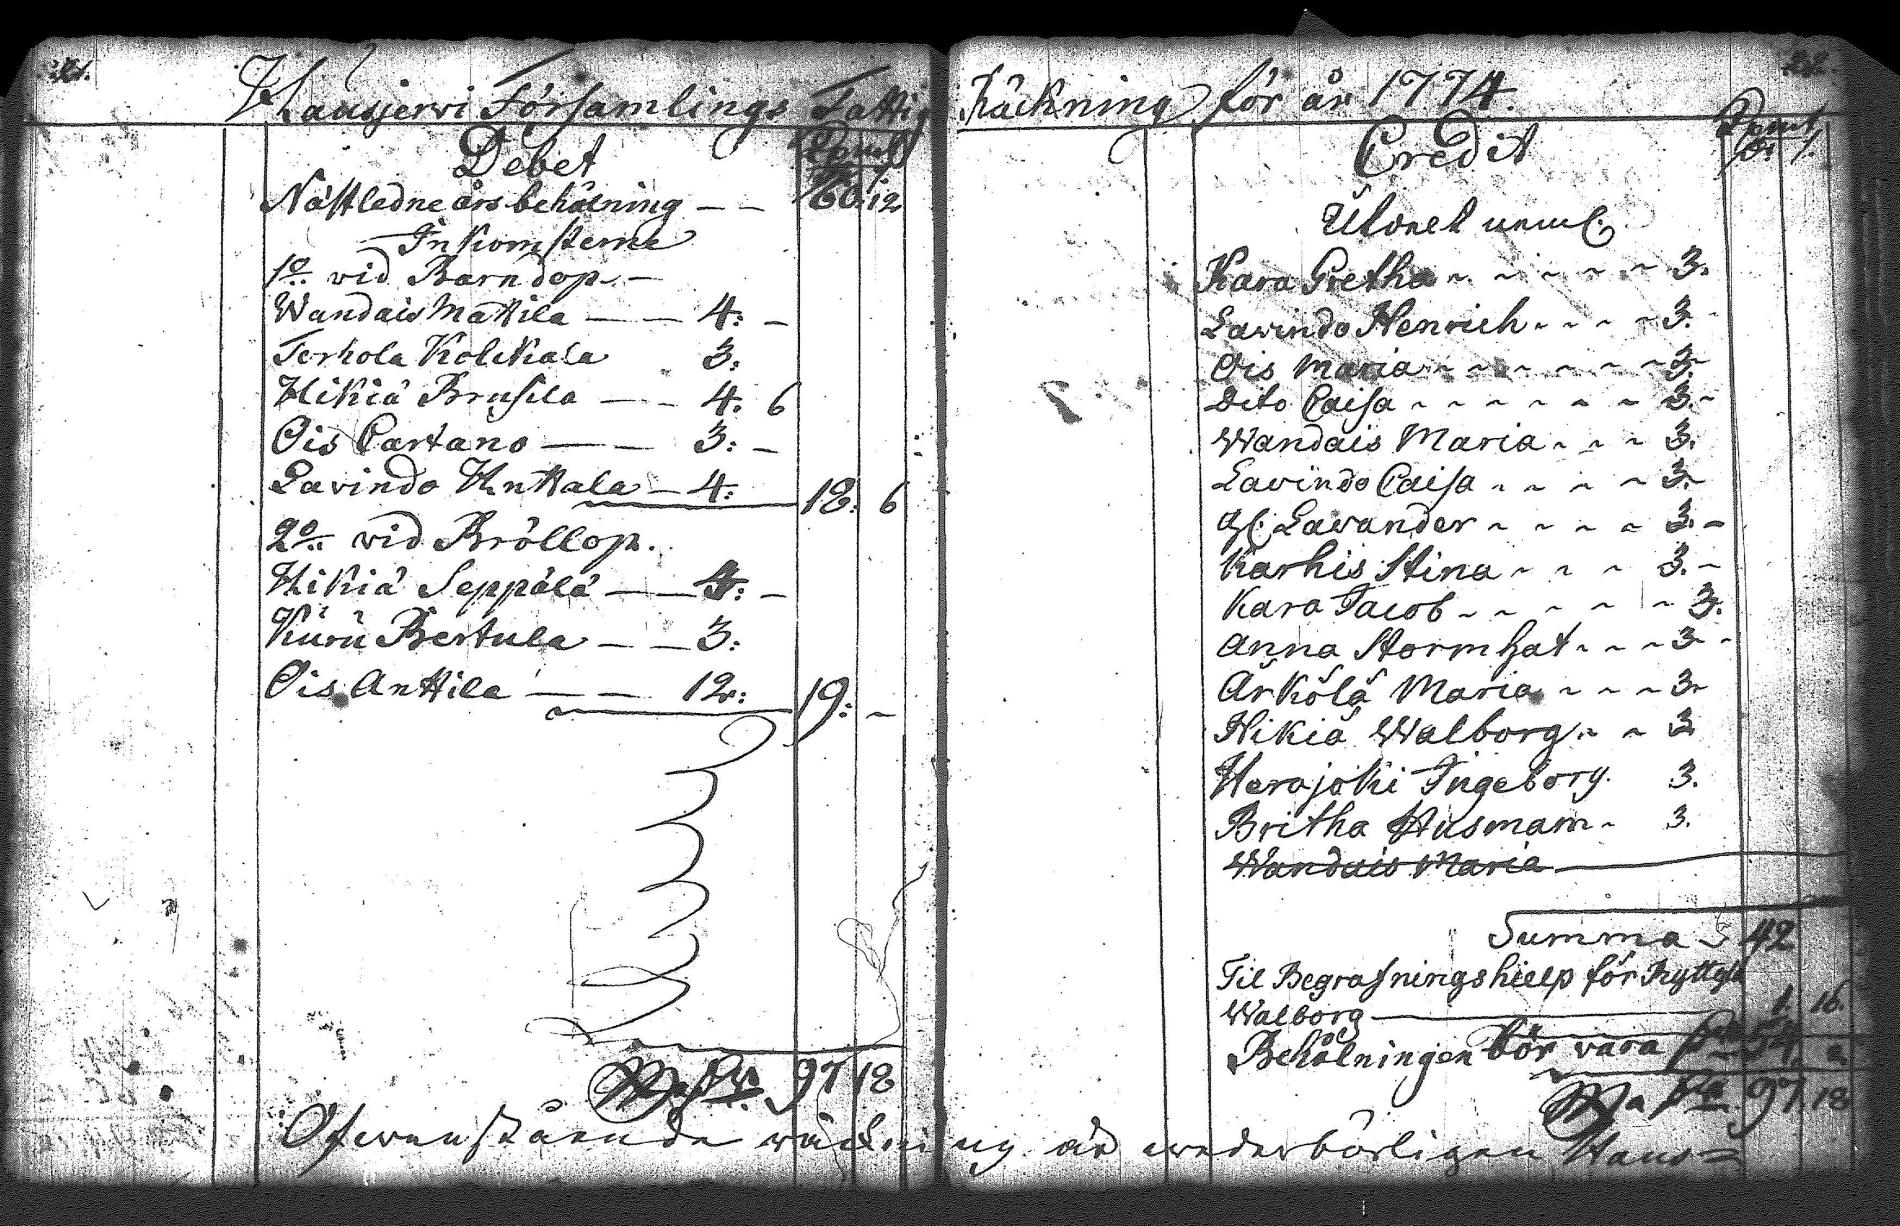 21.
Hausjervi Församlings Fattig
Debet
Nästledne års behålning — — 60:12
Inkomsterne
1o. vid Barndop. —
Wandais Mattila — — 4: —
Torhola Kolckala 3:
Hikiä Brusila — — 4: 6
Ois Partano — — 3: —
Lavindo Knttala — 4: 18: 6
2o. vid Bröllop.
Hikiä Seppälä — — 4: —
Kuru Bertula — — 3:
Ois Anttila — — 12: 19: —
97 18
Räckning för år 1774.
22.
Credit
Utdelt neml:
Kara Gretha 3.
Lavindo Henrich 3.
Ois Maria 3.
Dito Caisa 3. -
Wandais Maria 3.
Lavindo Caisa 3. -
gl. Lavander 3. -
Karhis Stina 3. -
Kara Jacob 3.
Anna Stormhat 3 -
Arkölä Maria 3.
Hikiä Walborg 3.
Herajoki Ingeborg. 3.
Britha Husmam 3.
Wandais Maria
Summa 42
Til Begrafningshielp för
Walborg — 1. 16.
Behålningen bör vara 54.
97. 18
Ofwanstående räckning är wederbörligen Haus=